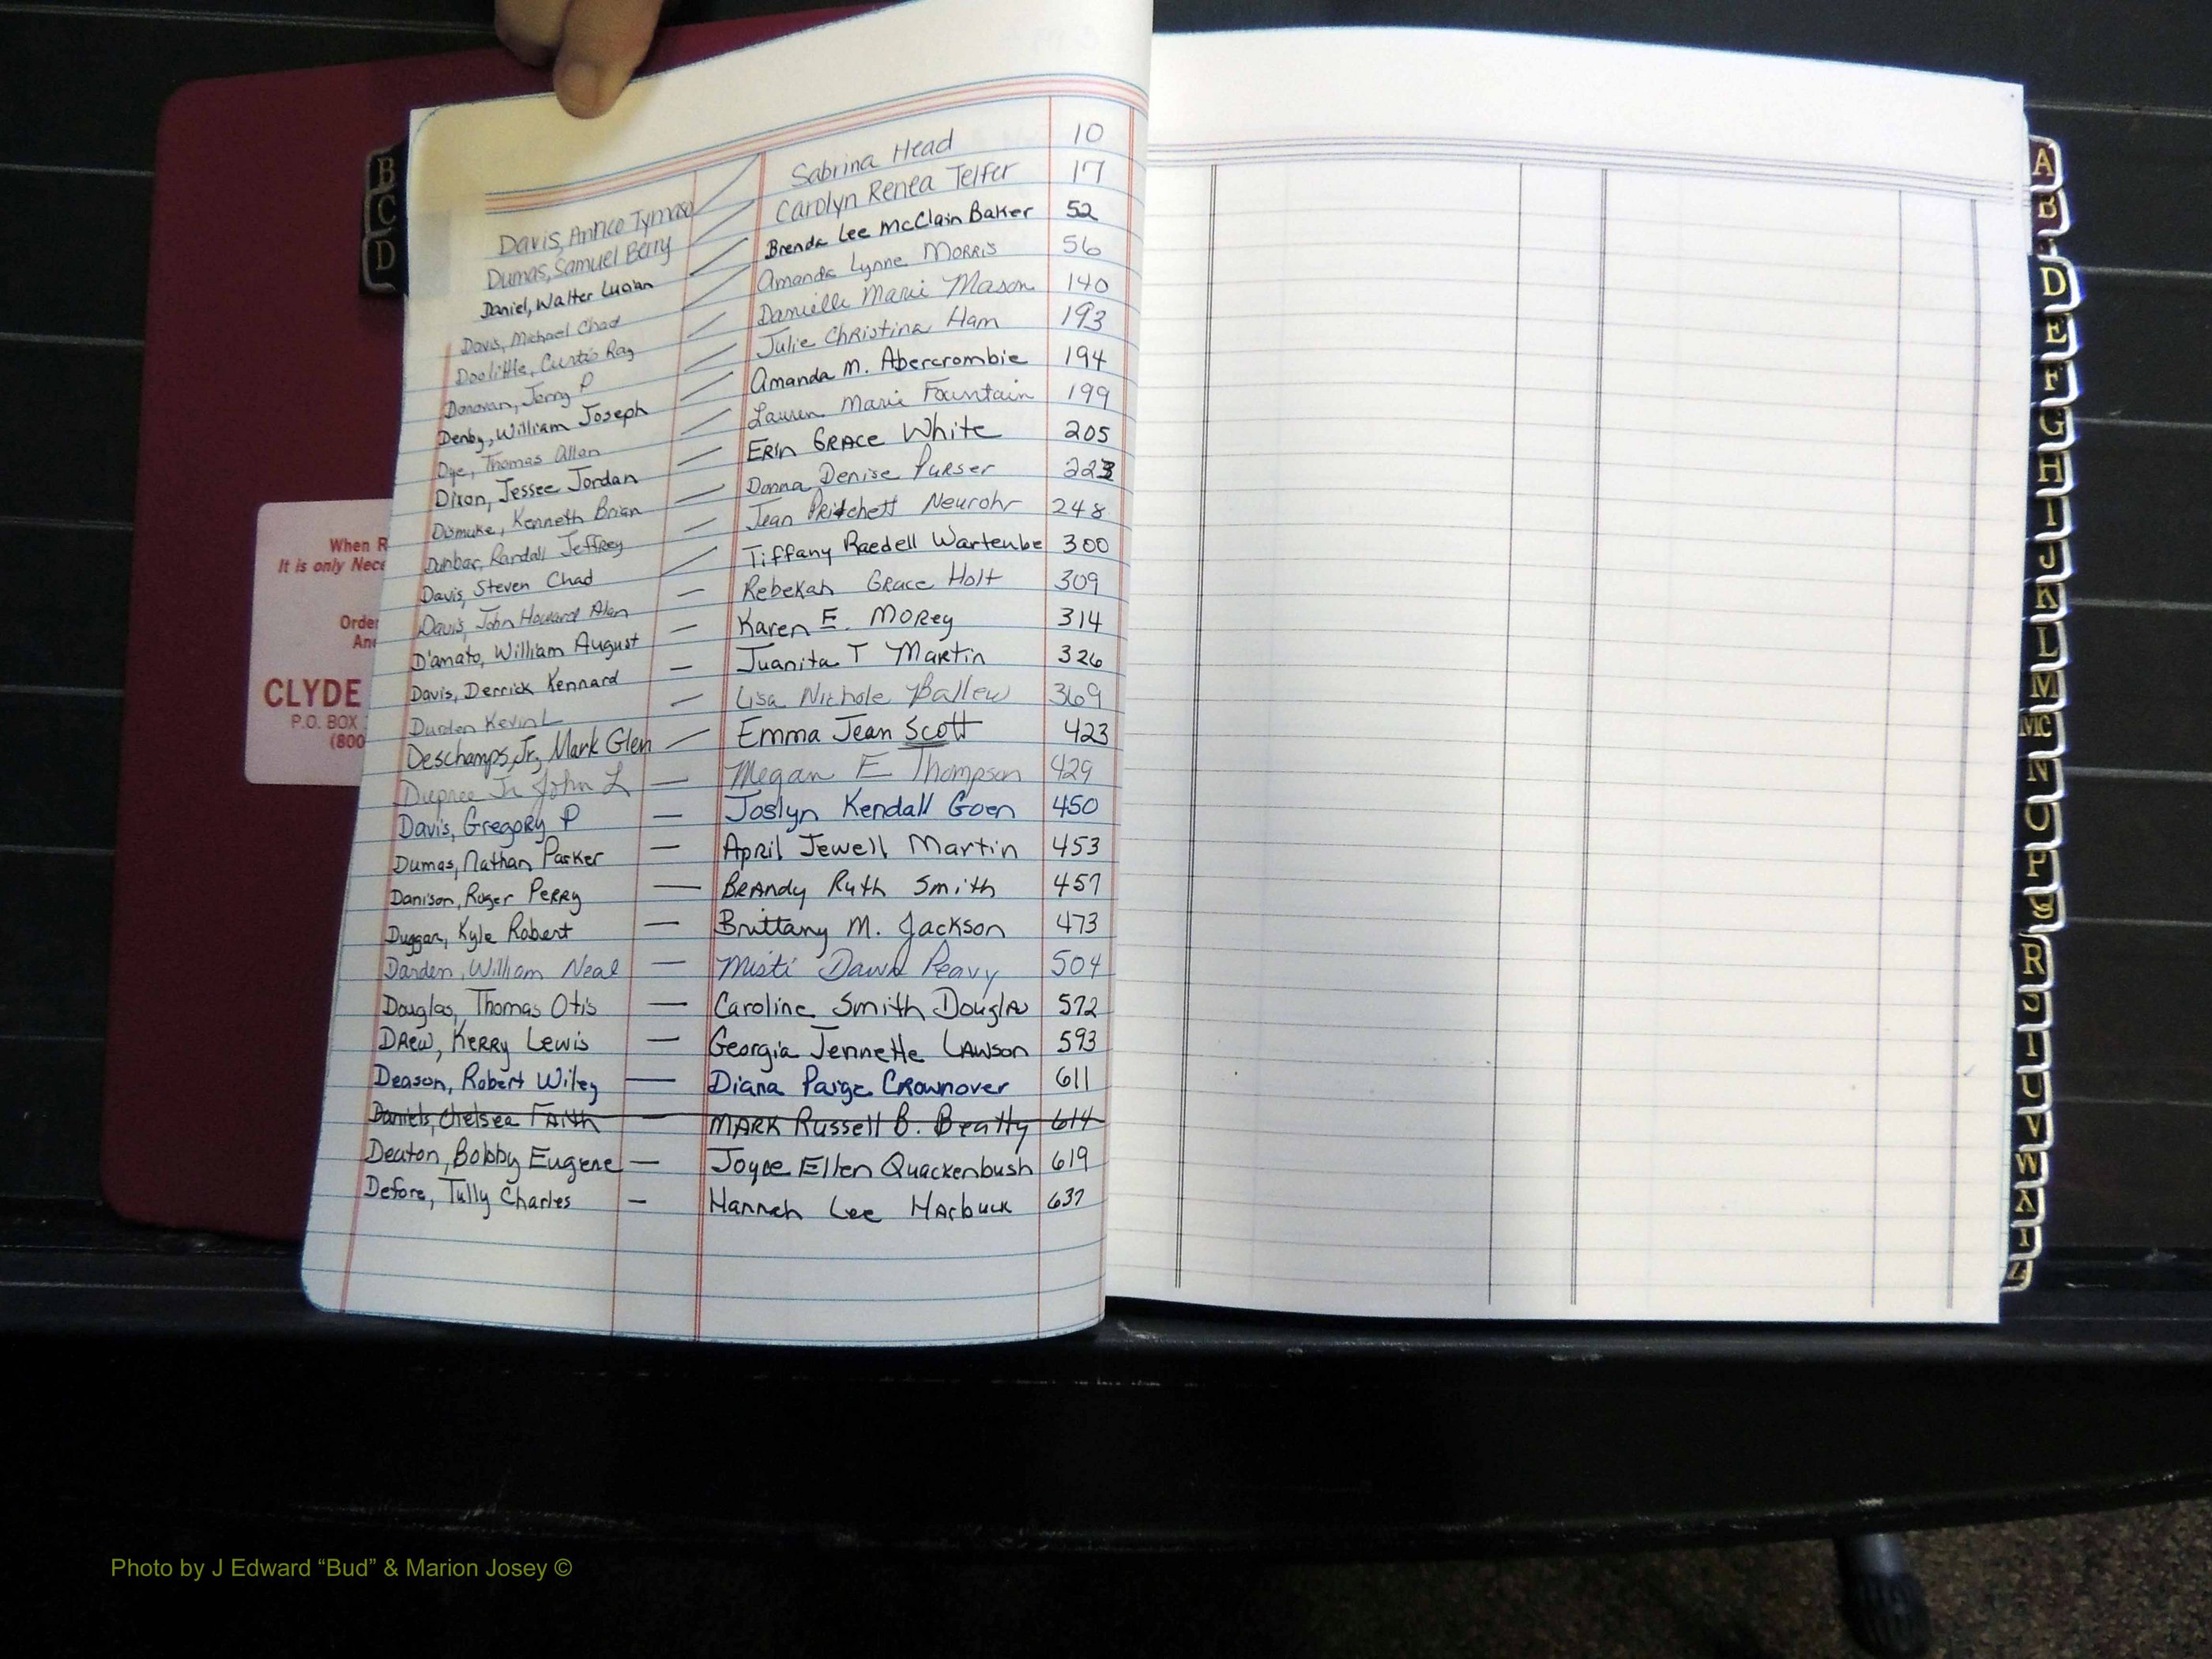 B
C
D
Davis, Annico Tymaso — Sabrina Head 10
Dumas, Samuel Berry — Carolyn Renea Telfer 17
Daniel, Walter Lucian — Brenda Lee McClain Baker 52
Davis, Michael Chad — Amanda Lynne Morris 56
Doolittle, Curtis Ray — Danielle Marie Mason 140
Donovan, Jerry P — Julie Christina Ham 193
Denby, William Joseph — Amanda M. Abercrombie 194
Dye, Thomas Allan — Lauren Marie Fountain 199
Dixon, Jessee Jordan — Erin Grace White 205
Dismuke, Kenneth Brian — Donna Denise Purser 223
Dunbar, Randall Jeffrey — Jean Pritchett Neurohr 248
Davis, Steven Chad — Tiffany Raedell Wartenbe 300
Davis, John Howard Alan — Rebekah Grace Holt 309
D'amato, William August — Karen E. Morey 314
Davis, Derrick Kennard — Juanita T Martin 326
Durden Kevin L — Lisa Nichole Ballew 369
Deschamps, Jr, Mark Glen — Emma Jean Scott 423
Dupree Jr John L — Megan E Thompson 429
Davis, Gregory P — Joslyn Kendall Goen 450
Dumas, Nathan Parker — April Jewell Martin 453
Danison, Roger Perry — Brandy Ruth Smith 457
Duggar, Kyle Robert — Brittany M. Jackson 473
Darden, William Neal — Misti Dawn Peavy 504
Douglas, Thomas Otis — Caroline Smith Douglas 572
Drew, Kerry Lewis — Georgia Jennette Lawson 593
Deason, Robert Wiley — Diana Paige Crownover 611
Daniels, Chelsea Faith — Mark Russell B. Beatty 614
Deaton, Bobby Eugene — Joyce Ellen Quackenbush 619
Defore, Tully Charles — Hannah Lee Harbuck 637
When R
It is only Nece
Order
An
CLYDE
P.O. BOX
(800
A
B
D
E
F
G
H
I
J
K
L
M
MC
N
O
P
Q
R
S
T
U
V
W
X
Y
Z
Photo by J Edward “Bud” & Marion Josey ©